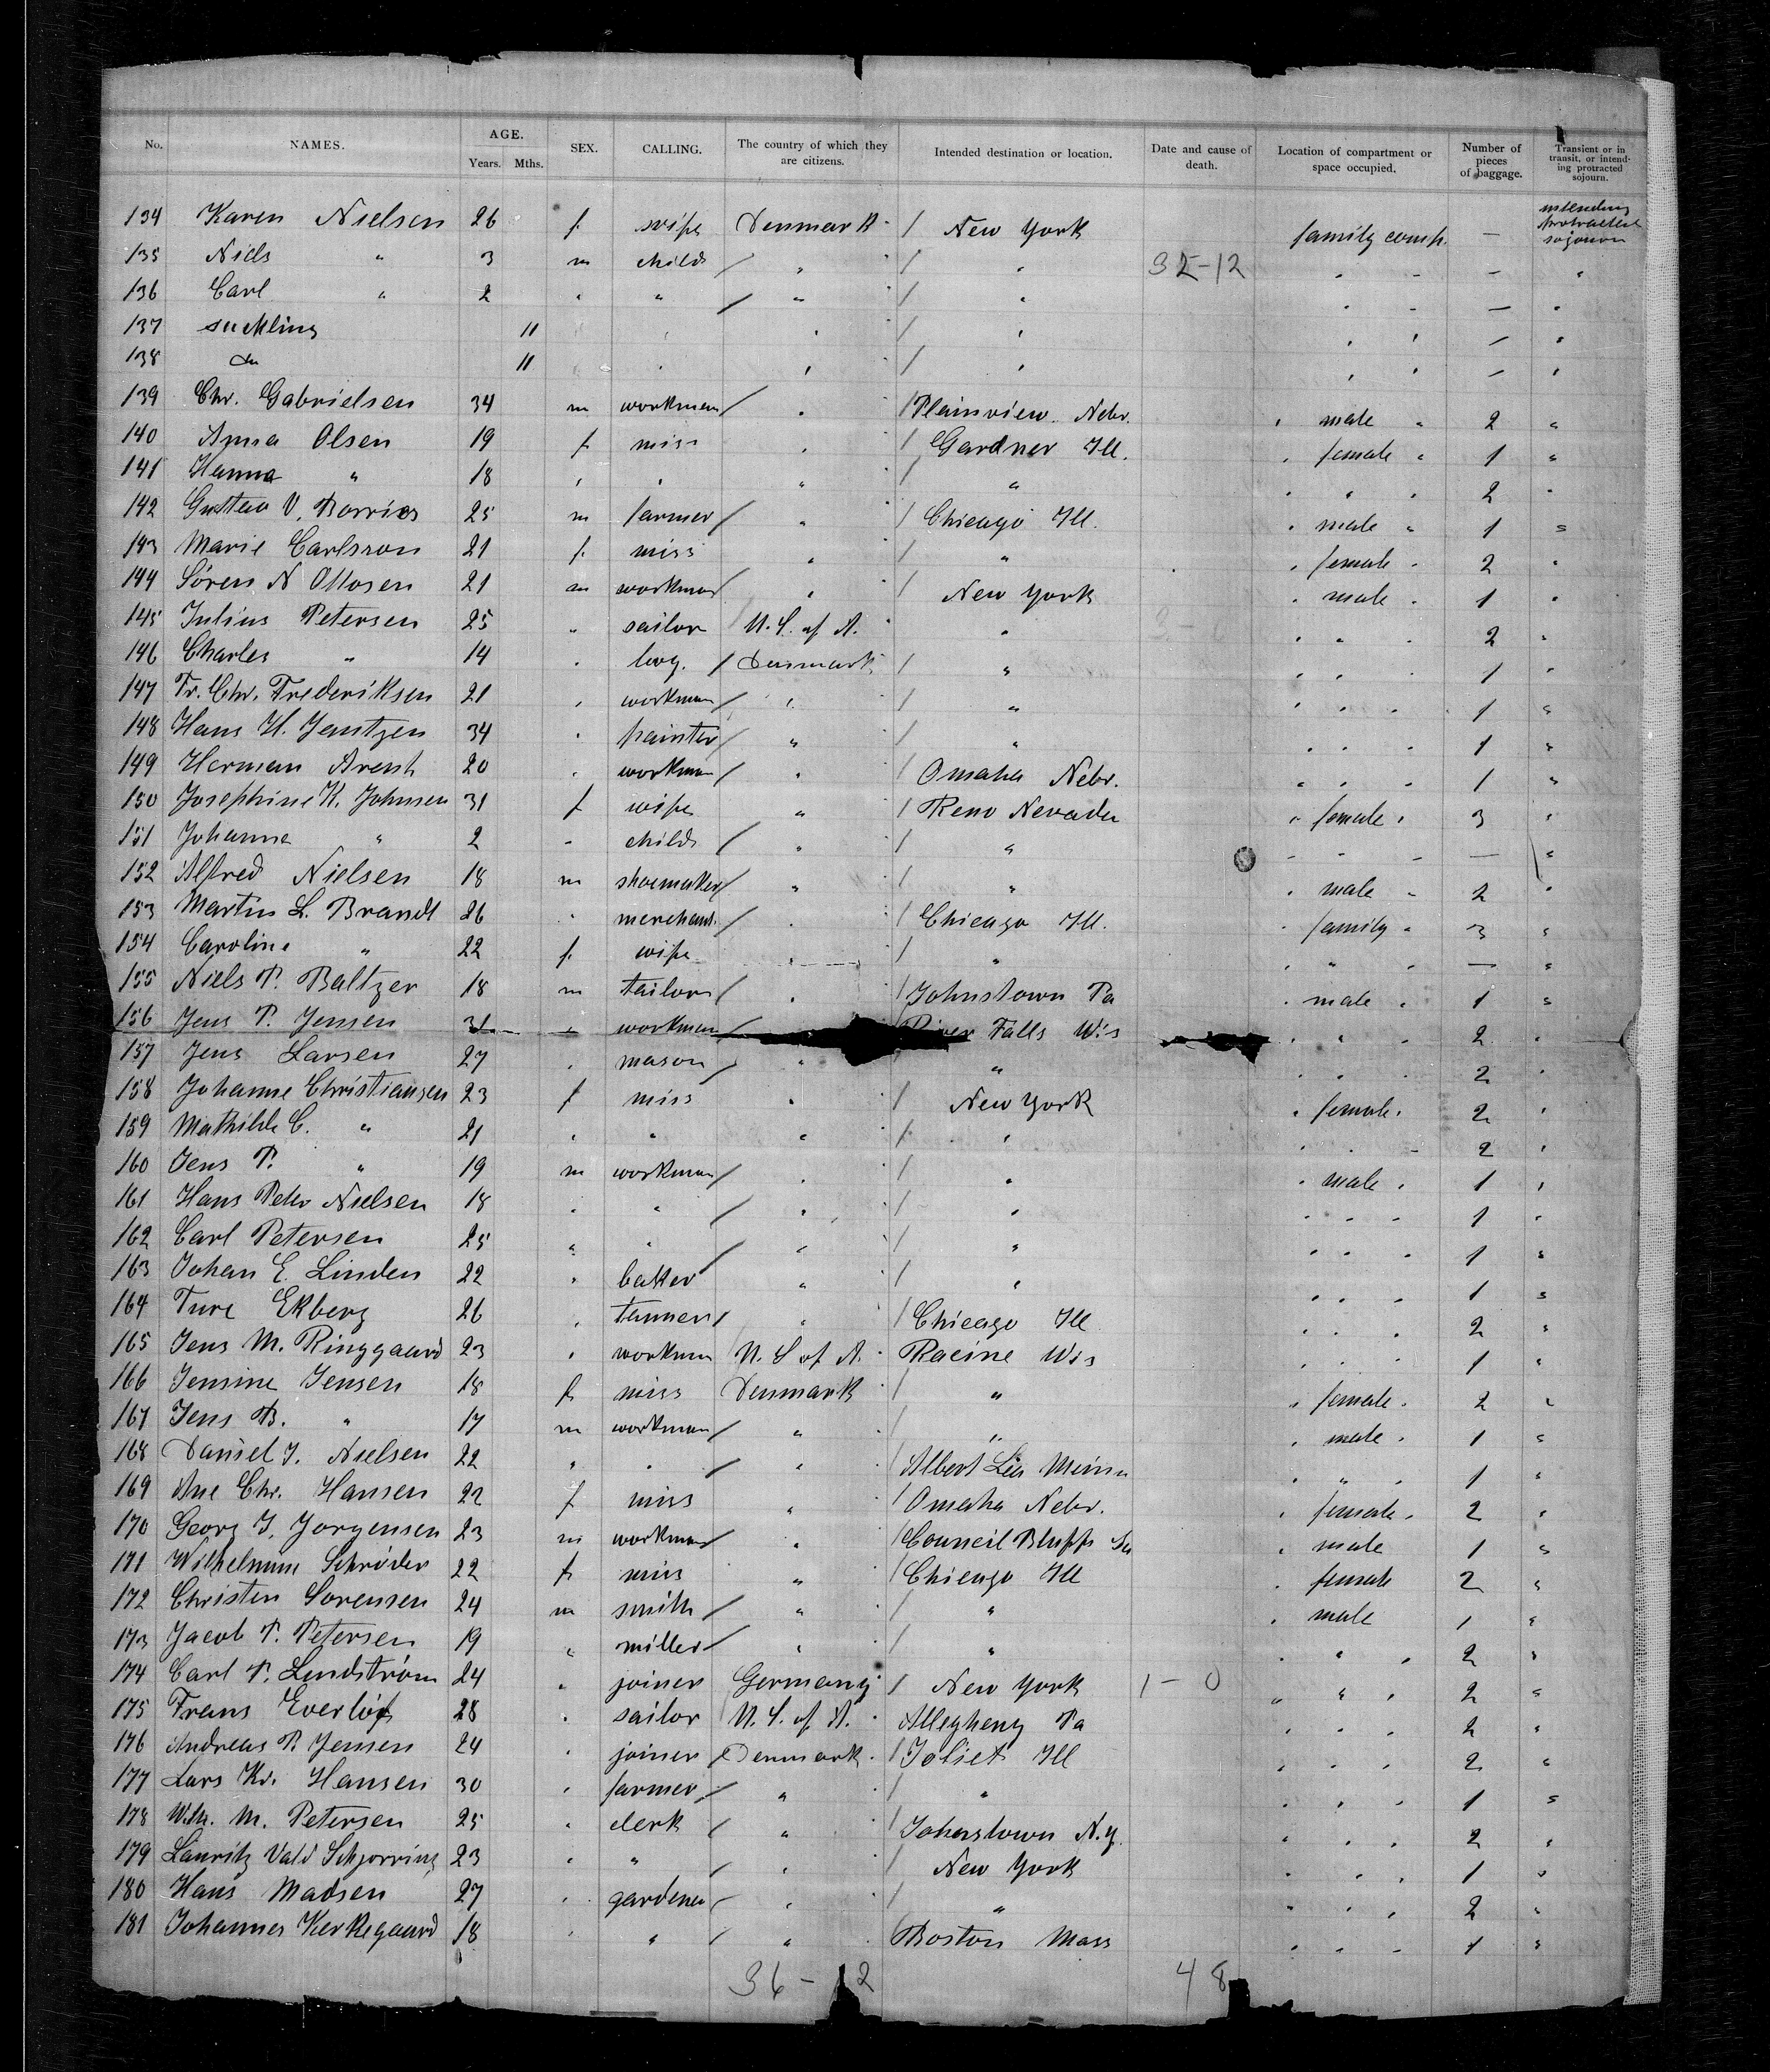 No. NAMES. AGE. Years. Mths. SEX. CALLING. The country of which they are citizens. Intended destination or location. Date and cause of death. Location of compartment or space occupied. Number of pieces of baggage. Transient or in transit, or intending protracted sojourn.
134 Karen Nielsen 26 f wife Denmark / New York family comp. — intending protracted sojourn
135 Niels " 3 m child / " / " 32-12 " - — "
136 Carl " 2 " " / " / " " - — "
137 suckling 11 " / " " " — "
138 do 11 " " / " " " — "
139 Chr. Gabrielsen 34 m workman / " / Plainview Nebr. " male " 2 "
140 Anna Olsen 19 f miss " / Gardner Ill. " female " 1 "
141 Hanna " 18 " " " / " " " " 2 "
142 Gustav V. Borries 25 m farmer / " / Chicago Ill. " male " 1 "
143 Marie Carlsson 21 f. miss " / " " female " 2 "
144 Sören N Ottosen 21 m workman / " / New York " male " 1 "
145 Julius Petersen 25 " sailor U. S. of A. " " " " 2 "
146 Charles " 14 " boy. / Denmark / " " " " 1 "
147 Fr. Chr. Frederiksen 21 " workman / " / " " " " 1 "
148 Hans H. Jantzen 34 " painter / " / " " " " 1 "
149 Herman Arent 20 " workman / " / Omaha Nebr. " " " 1 "
150 Josephine K. Johnsen 31 f wife " / Reno Nevada " female " 3 "
151 Johanne " 2 - child / " / " - - - — "
152 Alfred Nielsen 18 m shoemaker / " / " " male " 2 "
153 Martin L. Brandt 26 " merchant. / " / Chicago Ill. " family " 3 "
154 Caroline " 22 f. wife " / " " " " — "
155 Niels P. Baltzer 18 m tailor / " / Johnstown Pa " male " 1 "
156 Jens P. Jensen 31 " workman / River Falls Wis " " " 2 "
157 Jens Larsen 27 " mason / " " " " " 2 "
158 Johanne Christiansen 23 f miss " / New York " female " 2 "
159 Mathilde C. " 21 " " " / " " " - 2 "
160 Jens P. " 19 m workman / " / " " male " 1 "
161 Hans Peter Nielsen 18 " " / " / " " " " 1 "
162 Carl Petersen 25 " " / " / " " " " 1 "
163 Johan E. Linden 22 " baker / " / " " " " 1 "
164 Ture Ekberg 26 " tanner / " / Chicago Ill " " " 2 "
165 Jens M. Ringgaard 23 " workman U. S of A. Racine Wis " " " 1 "
166 Jensine Jensen 18 f. miss Denmark / " " female " 2 "
167 Jens B. " 17 m workman / " / " " male " 1 "
168 Daniel J. Nielsen 22 " " / " / Albert Lea Minn " " " 1 "
169 Ane Chr. Hansen 22 f miss " / Omaha Nebr. " female " 2 "
170 Georg J. Jorgensen 23 m workman " / Council Bluffs Ia " male 1 "
171 Wilhelmine Schröder 22 f. miss " / Chicago Ill " female 2 "
172 Christen Sorensen 24 m smith / " / " " male 1 "
173 Jacob P. Petersen 19 " miller / " / " " " " 2 "
174 Carl P. Lundström 24 " joiner Germany / New York 1 - 0 " " " 2 "
175 Frans Everlöf 28 " sailor U. S. of A. Allegheny Pa " " " 2 "
176 Andreas P. Jensen 24 " joiner / Denmark / Joliet Ill " " " 2 "
177 Lars Kr. Hansen 30 " farmer / " / " " " " 1 "
178 Wilh. M. Petersen 25 " clerk / " / Johnstown N.y. " " " 2 "
179 Lauritz Vald Schjorring 23 " " / " / New York " " " 1 "
180 Hans Madsen 27 " gardener / " / " " " " 2 "
181 Johannes Kierkegaard 18 " " / " / Boston Mass " " - 1 "
36 - 12 48